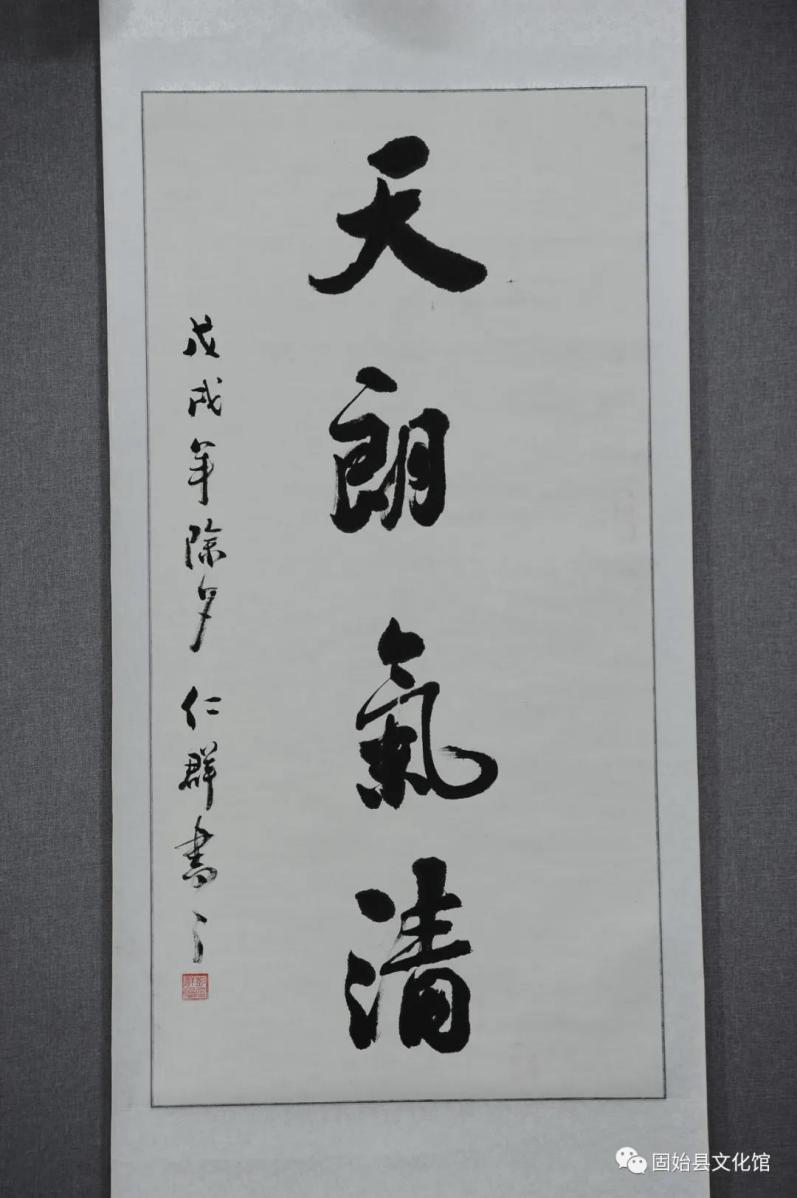 天朗氣清
戊戌年除夕 仁群書
固始县文化馆